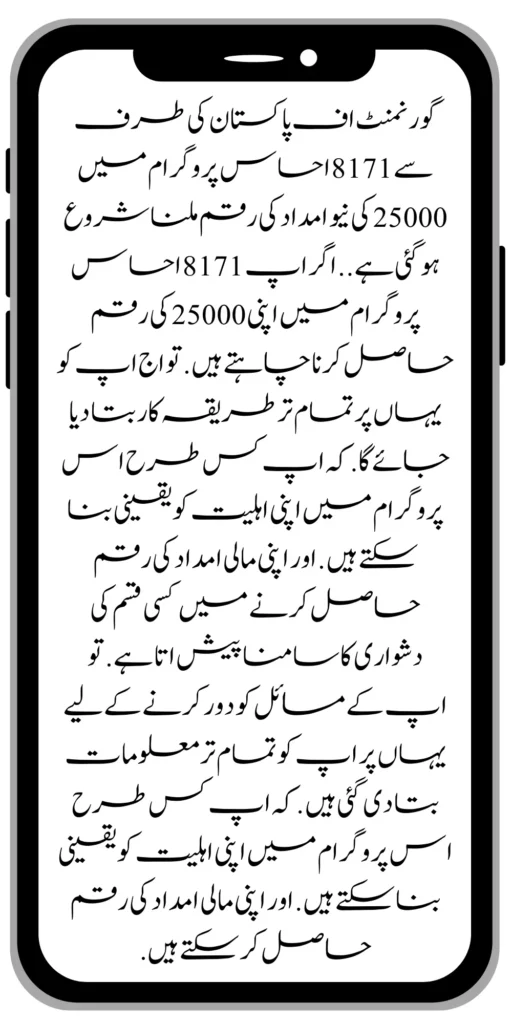 گورنمنٹ اف پاکستان کی طرف
سے 8171 احساس پروگرام میں
25000 کی نیو امداد کی رقم ملنا شروع
ہو گئی ہے.. اگر اپ 8171 احساس
پروگرام میں اپنی 25000 کی رقم
حاصل کرنا چاہتے ہیں. تو اج اپ کو
یہاں پر تمام تر طریقہ کار بتا دیا
جائے گا. کہ اپ کس طرح اس
پروگرام میں اپنی اہلیت کو یقینی بنا
سکتے ہیں. اور اپنی مالی امداد کی رقم
حاصل کرنے میں کسی قسم کی
دشواری کا سامنا پیش اتا ہے. تو
اپ کے مسائل کو دور کرنے کے لیے
یہاں پر اپ کو تمام تر معلومات
بتا دی گئی ہیں. کہ اپ کس طرح
اس پروگرام میں اپنی اہلیت کو یقینی
بنا سکتے ہیں. اور اپنی مالی امداد کی رقم
حاصل کر سکتے ہیں.